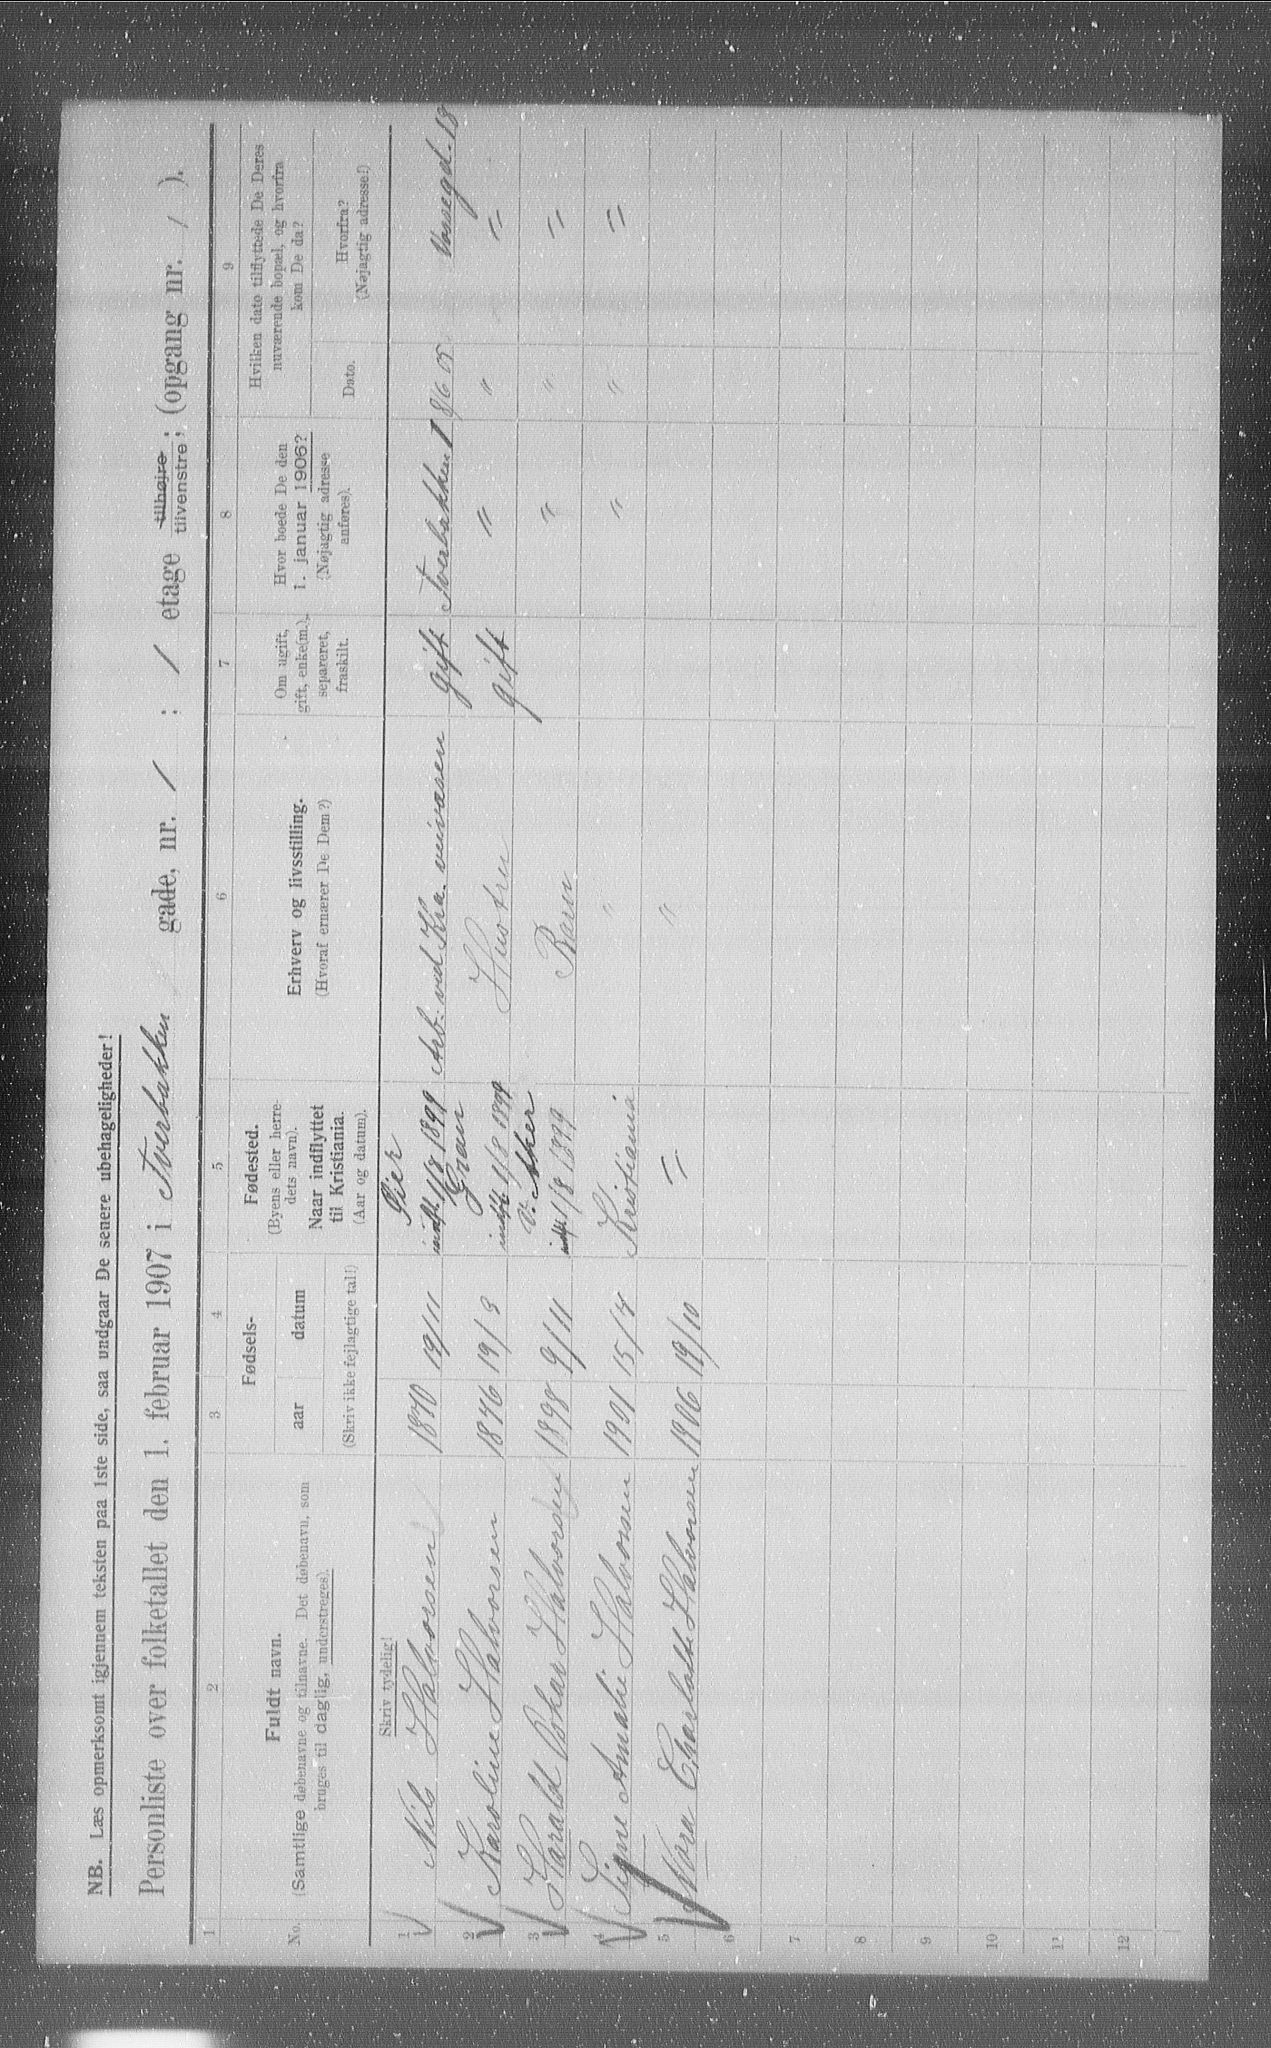 NB. Læs opmerksomt igjennem teksten paa 1ste side, saa undgaar De senere ubehageligheder!
Personliste over folketallet den 1. februar 1907 i Tverbakken gade, nr. 1 : 1 etage tilhøjre tilvenstre; (opgang nr. 1 ).
1 2 3 4 5 6 7 8 9
No.
Fuldt navn.
(Samtlige døbenavne og tilnavne. Det døbenavn, som
bruges til daglig, understreges).
Fødsels-
aar datum
(Skriv ikke fejlagtige tal!)
Fødested.
(Byens eller herre-
dets navn).
Naar indflyttet
til Kristiania.
(Aar og datum).
Erhverv og livsstilling.
(Hvoraf ernærer De Dem?)
Om ugift,
gift, enke(m.),
separeret,
fraskilt.
Hvor boede De den
1. januar 1906?
(Nøjagtig adresse
anføres).
Hvilken dato tilflyttede De Deres
nuværende bopæl, og hvorfra
kom De da?
Dato.
Hvorfra?
(Nøjagtig adresse!)
Skriv tydelig!
1 Nils Halvorsen 1870 19/11 indfl. 1/8 1899 Arb. ved Kra. veivæsen gift Tverbakken 1 8/6 05 Vossegd. 18
Gran
2 Karoline Halvorsen 1876 19/3 indfl. 1/8 1899 Hustru gift " " "
V. Aker
3 Harald Oskar Halvorsen 1898 9/11 indfl. 1/8 1899 Barn " " "
4 Signe Amalie Halvorsen 1901 15/4 Kristiania " " " "
5 Nora Charlotte Halvorsen 1906 19/10 " "
6
7
8
9
10
11
12